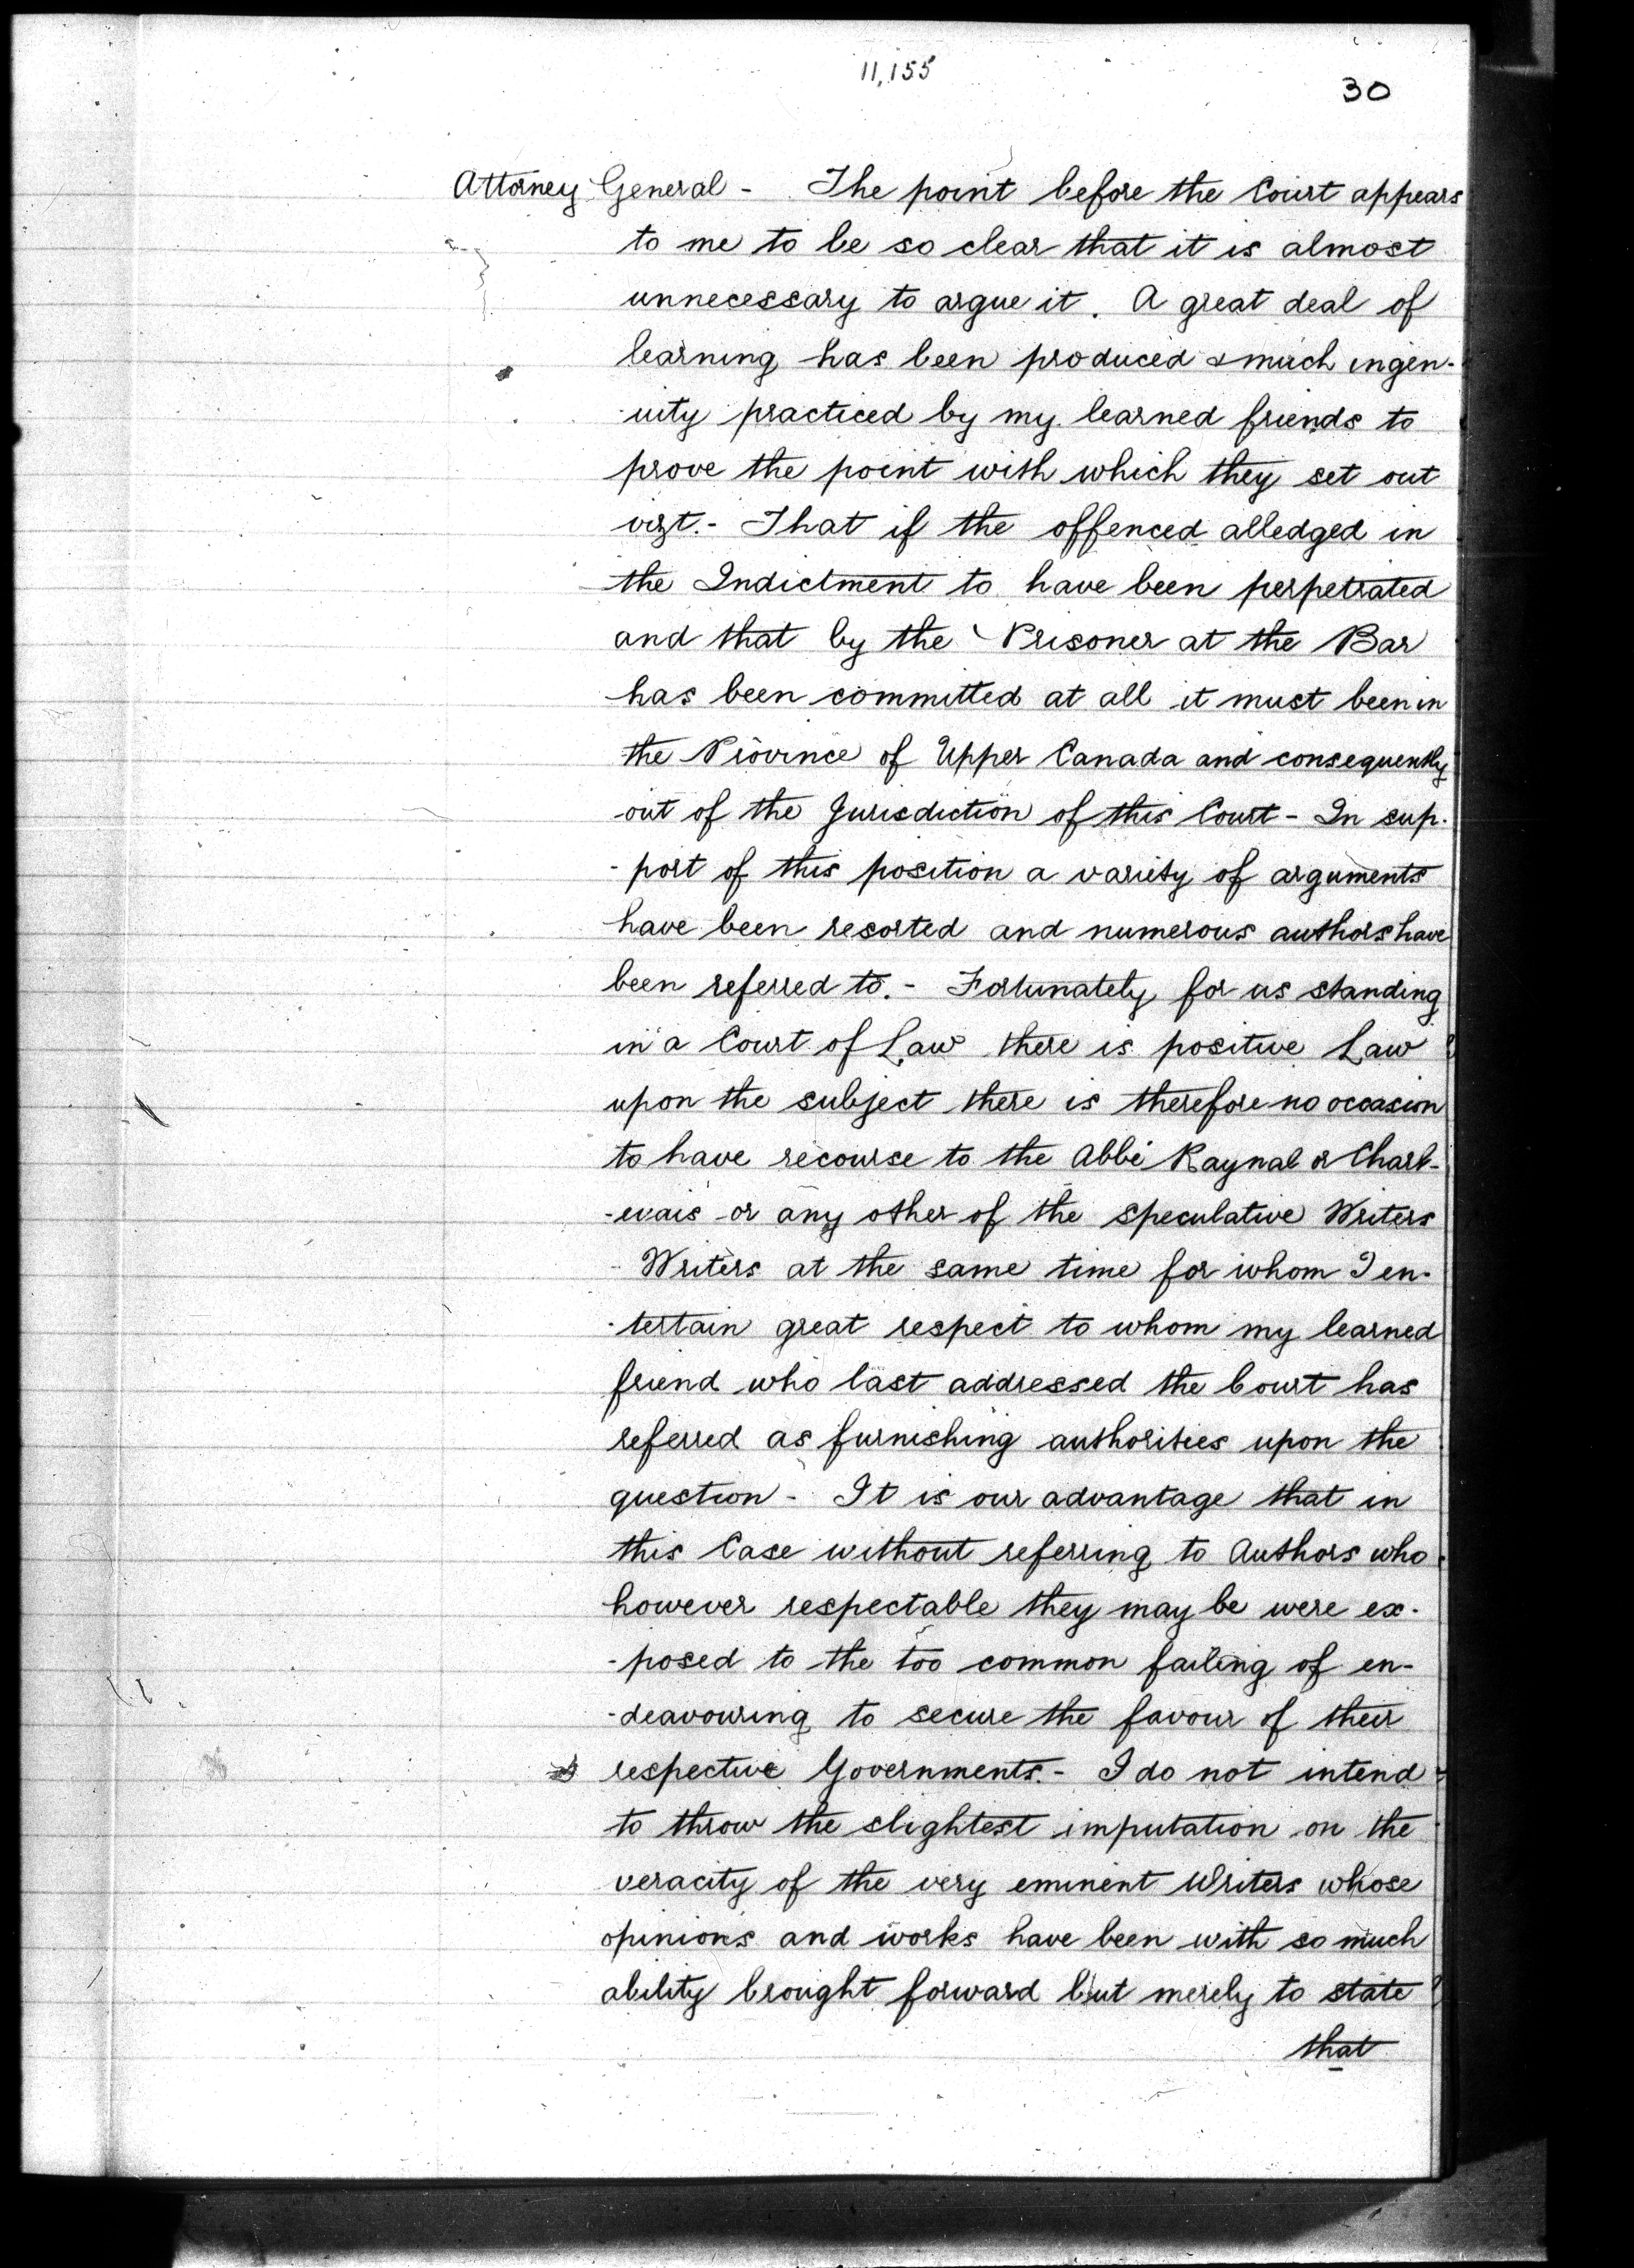 11,155
30
Attorney General - The point before the Court appears
to me to be so clear that it is almost
unnecessary to argue it. A great deal of
learning has been produced & much ingen-
-uity practiced by my learned friends to
prove the point with which they set out
vizt. - That if the offenced alledged in
the Indictment to have been perpetrated
and that by the Prisoner at the Bar
has been committed at all it must been in
the Province of Upper Canada and consequently
out of the Jurisdiction of this Court - In sup-
-port of this position a variety of arguments
have been resorted and numerous authors have
been referred to. - Fortunately for us standing
in a Court of Law there is positive Law
upon the subject there is therefore no occasion
to have recourse to the Abbé Raynal or Charl-
-evais or any other of the speculative Writers
- Writers at the same time for whom I en-
-tertain great respect to whom my learned
friend who last addressed the Court has
referred as furnishing authorities upon the
question - It is our advantage that in
this Case without referring to Authors who
however respectable they may be were ex-
-posed to the too common failing of en-
-deavouring to secure the favour of their
respective Governments. - I do not intend
to throw the slightest imputation on the
veracity of the very eminent Writers whose
opinions and works have been with so much
ability brought forward but merely to state
that